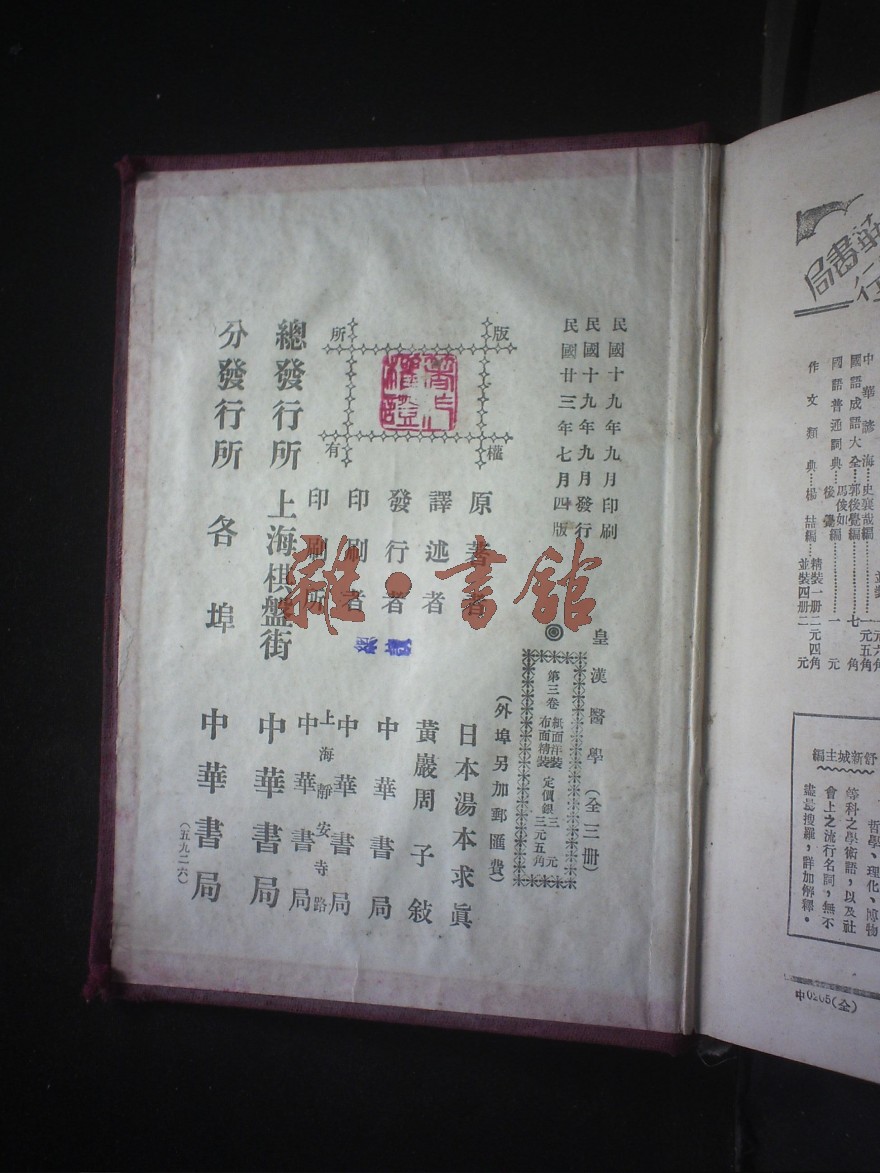 民國十九年九月印刷
民國十九年九月發行
民國廿三年七月四版
皇漢醫學(全三册)
◎
第三卷 紙面洋裝 定價銀三元
布面精裝 三元五角
(外埠另加郵匯費)
版權所有
原著者 日本湯本求眞
譯述者 黃巖周子敍
發行者 中華書局
印刷者 中華書局
印刷所 上海靜安寺路
中華書局
總發行所 上海棋盤街 中華書局
分發行所 各埠 中華書局
(五九二六)
雜·書館
華書局
行
中華諺海 史襄哉編
國語成語大全 郭後覺編 七角
國語普通詞典 馬俊如 後覺編 一元
作文類典 楊喆編 精裝一册二元四角
並裝四册二元
舒新城主編
哲學、理化、博物
等科之學術語,以及社
會上之流行名詞,無不
盡量搜羅,詳加解釋。
中0205(全)